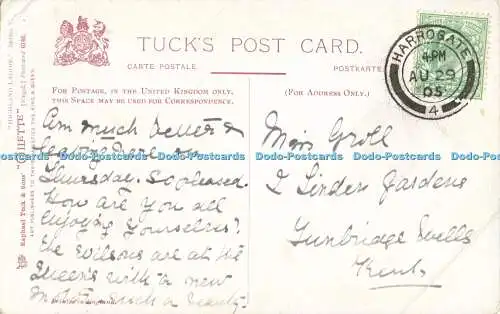 TUCK'S POST CARD.
CARTE POSTALE
POSTKARTE
FOR POSTAGE, IN THE UNITED KINGDOM ONLY,
THIS SPACE MAY BE USED FOR CORRESPONDENCE.
(FOR ADDRESS ONLY.)
HARROGATE
4 PM
AU 29
05
4
Am much better &
leaving here on
Thursday. So pleased.
How are you all
enjoying yourselves?
The Wilsons are at the
Queen's with a new
such a beauty.
Miss Groll
2 Linden Gardens
Tunbridge Wells
Kent
Raphael Tuck & Sons' "OILETTE"
ART PUBLISHERS TO THEIR MAJESTIES THE KING & QUEEN
Dodo-Postcards Dodo-Postcards Dodo-Postcards Dodo-Postcards Dodo-Postcards Dodo-Postcards